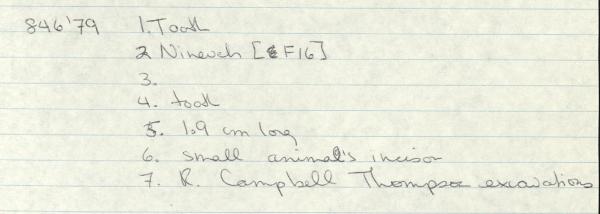 846'79 1. Tooth
2 Nineveh [F16]
3.
4. tooth
5. 1.9 cm long
6. small animal's incisor
7. R. Campbell Thompson excavations